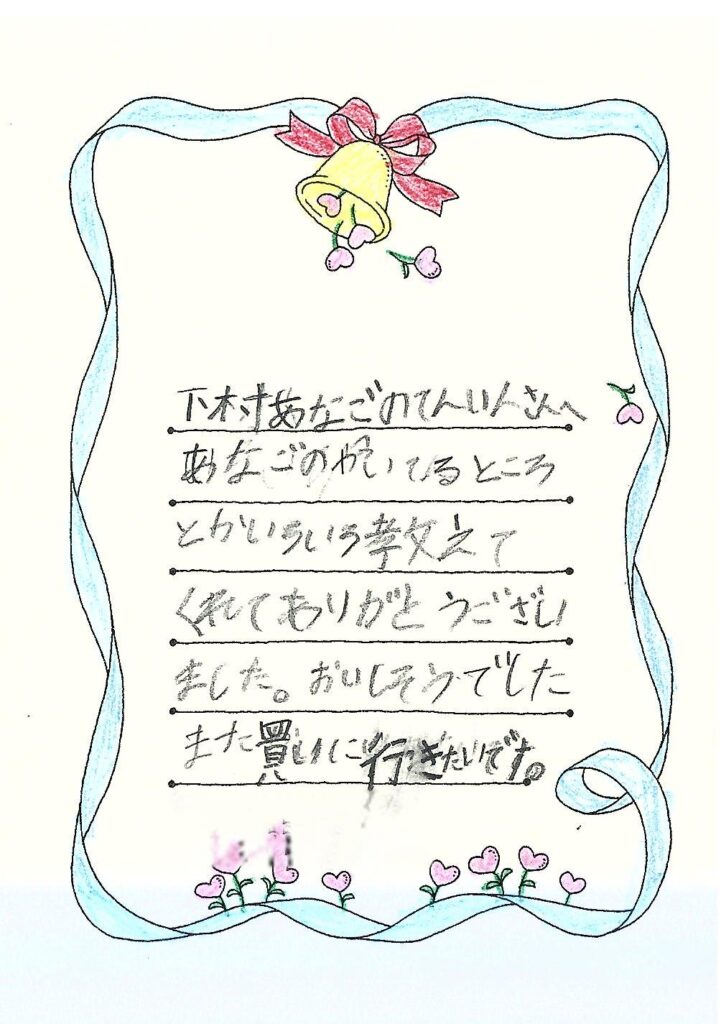 下村あなごのてんいんさんへ
あなごのやいてるところ
とかいろいろ教えて
くれてありがとうござい
ました。おいしそうでした
また買いに行きたいです。